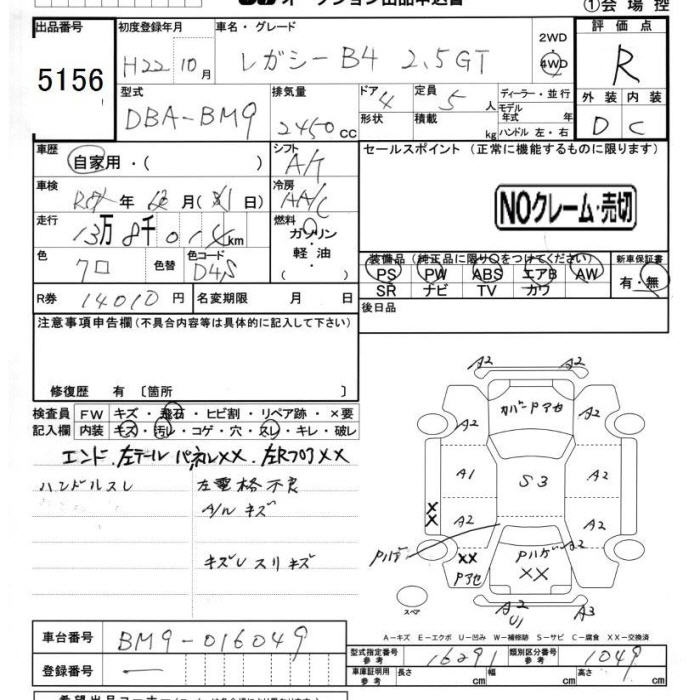 オークション出品申込書
①会場控
出品番号
5156
初度登録年月
H22 10月
車名・グレード
レガシーB4 2.5GT
2WD
4WD
評価点
R
外装 内装
D C
型式
DBA-BM9
排気量
2450cc
ドア 4
形状
定員 5人
積載 kg
ディーラー・並行
モデル
年式 年
ハンドル 左・右
車歴
自家用・( )
シフト
A/T
セールスポイント (正常に機能するものに限ります)
NOクレーム・売切
車検
年 月( 日)
冷房
AA/C
走行
13万8千014km
燃料
ガソリン・
軽油・
( )
色
クロ
色替
色コード
D4S
装備品 (純正品に限り○をつけてください)
PS PW ABS エアB AW
SR ナビ TV カワ
新車保証書
有・無
R券 14010円
名変期限 月 日
後日品
注意事項申告欄 (不具合内容等は具体的に記入して下さい)
修復歴 有〔箇所 〕
検査員 FW キズ・飛石・ヒビ割・リペア跡・×要
記入欄 内装 キズ・汚レ・コゲ・穴・スレ・キレ・破レ
エンド.左テールパネルXX.左RフロアXX
ハンドルスレ
左電格不良
A/Wキズ
キズUスリキズ
A2 A2
カバードアセ
A2 A2
A1 S3 A2
XX A2 A2
Pハゲ XX Pハゲ A2
Pアセ XX
スペア
A2 A3
U1
A-キズ E-エクボ U-凹み W-補修跡 S-サビ C-腐食 XX-交換済
車台番号 BM9-016049
型式指定番号
参考
16291
類別区分番号
参考
1049
登録番号 —
車庫証明用
参考
長さ cm 幅 cm 高さ cm